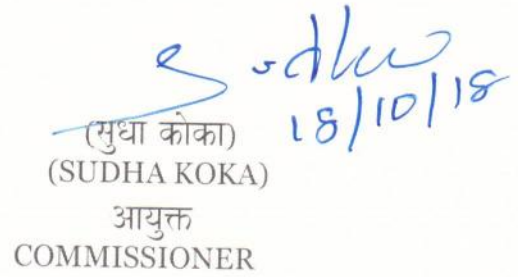 S. dha
18/10/18
(सुधा कोका)
(SUDHA KOKA)
आयुक्त
COMMISSIONER